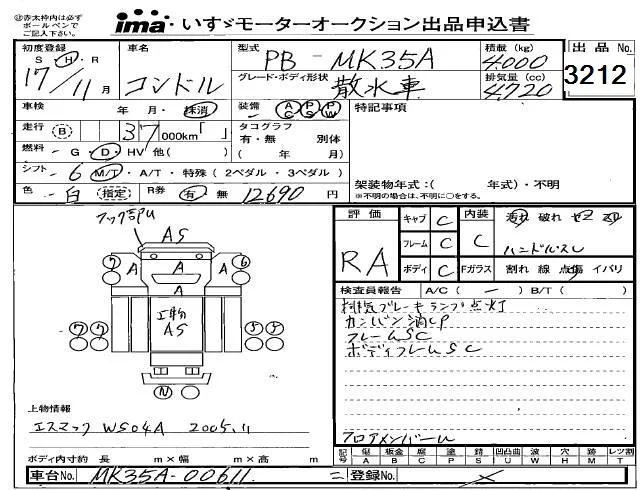 ㊟赤太枠内は必ず
ボールペンで
ご記入下さい。
ima・いすゞモーターオークション出品申込書
初度登録 S・H・R 17/11月
車名 コンドル
型式 PB-MK35A
積載(kg) 4000
出品No. 3212
グレード・ボディ形状 散水車
排気量(cc) 4720
車検 年 月・抹消
装備 AC PS PW
特記事項
走行 B 37,000km「 」
タコグラフ 有・無 別体
燃料 - G・D・HV 他( )
( 年 月)
シフト - 6 M/T・A/T・特殊(2ペダル・3ペダル)
架装物年式:( 年式)・不明
※不明の場合は、不明に○をする。
色 - 白(指定) R券 有・無 12690円
フック部凹
評価 RA
キャブ C
フレーム C
ボディ C
内装 C
汚れ 破れ
ハンドルスレ
Fガラス 割れ 線 点傷 イバリ
AS
A A A
A
7 6
上物
AS
7 7 5 5
N
検査員報告 A/C( - ) B/T( )
排気ブレーキランプ点灯
カンバン消CP
フレームSC
ボディフレームSC
フロアメンバーU
上物情報
エスマック WS04A 2005.11
ボディ内寸約 長 m×幅 m×高 m
記号 傷A 板金B 腐C 塗P 錆S 凹凸曲U 波W 穴H 跡M レツ割T
車台No. MK35A-00611
登録No.